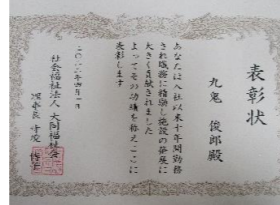 表彰状
九鬼 俊郎殿
あなたは入社以来十年間勤務
され職務に精励し施設の発展に
大きく貢献されました
よってその功績を称えここに
表彰します
社会福祉法人 大同福祉会
理事長